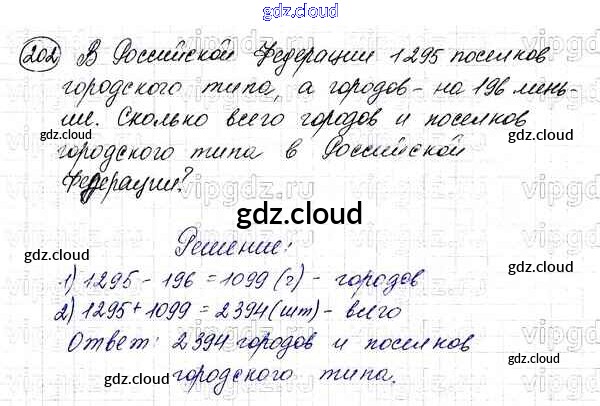 gdz.cloud
202 В Российской Федерации 1295 поселков
городского типа, а городов - на 196 мень-
ше. Сколько всего городов и поселков
городского типа в Российской
Федерации?
gdz.cloud
Решение:
1) 1295 - 196 = 1099 (г) - городов
2) 1295 + 1099 = 2394 (шт) - всего
Ответ: 2394 городов и поселков
городского типа.
gdz.cloud
gdz.cloud
gdz.cloud
gdz.cloud
gdz.cloud
gdz.cloud
gdz.cloud